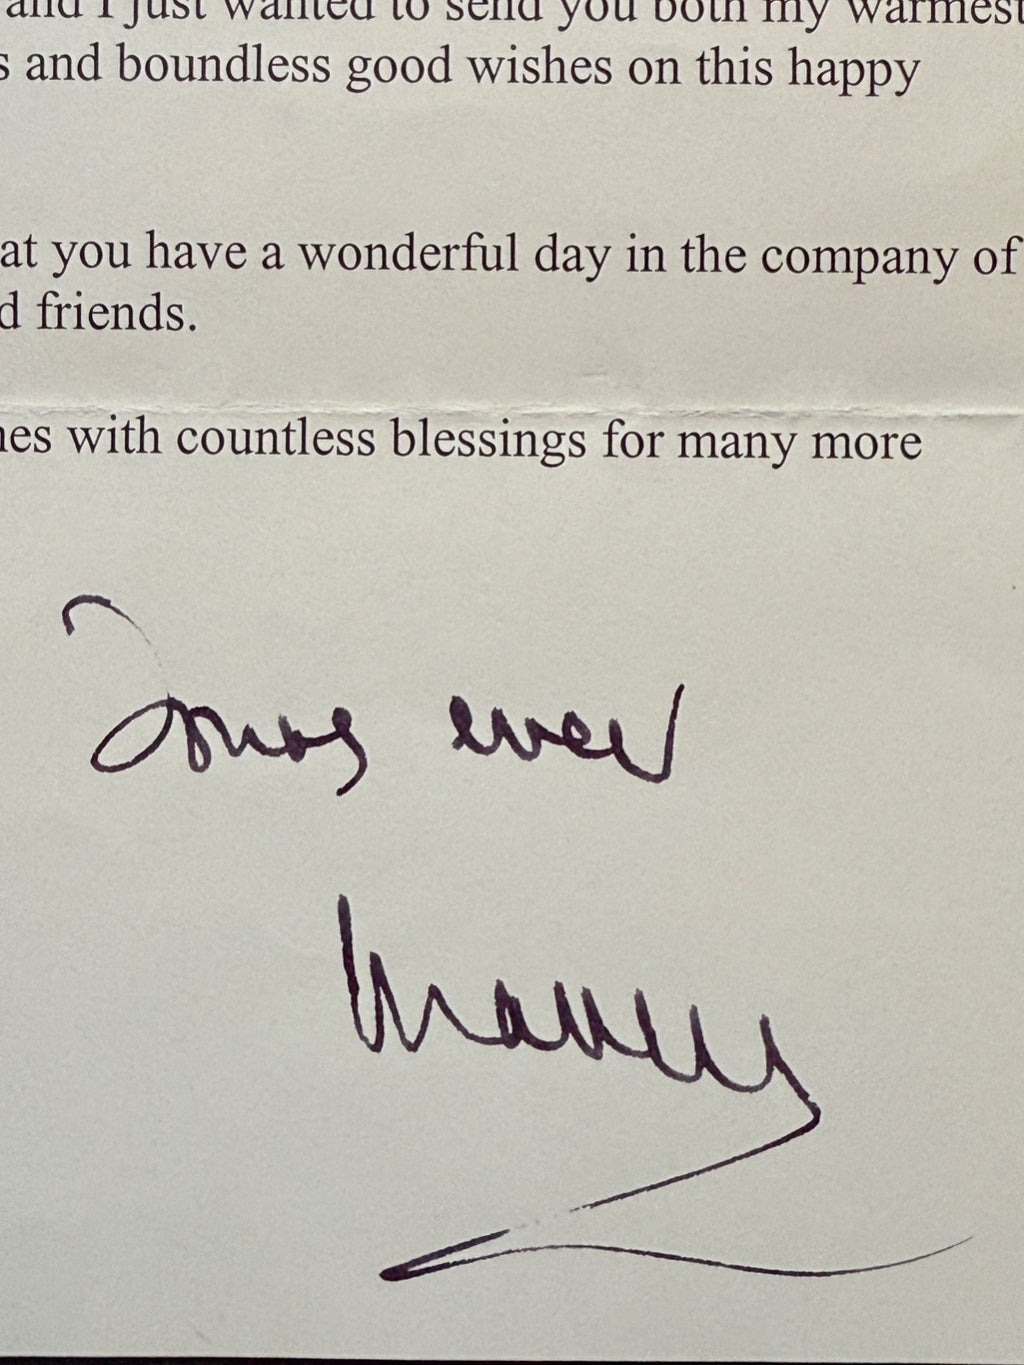 and I just wanted to send you both my warmest
s and boundless good wishes on this happy
at you have a wonderful day in the company of
d friends.
nes with countless blessings for many more
Yours ever